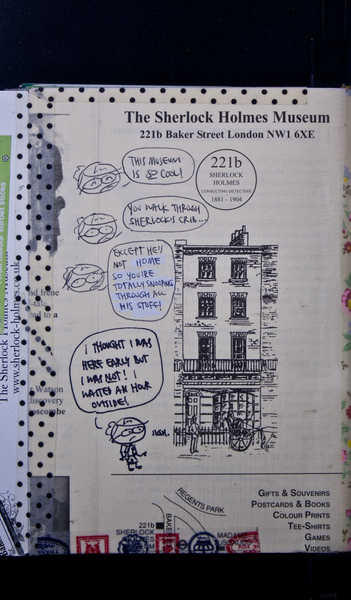 The Sherlock Holmes Museum
221b Baker Street London NW1 6XE
221b
SHERLOCK
HOLMES
CONSULTING DETECTIVE
1881 - 1904
THIS MUSEUM
IS SO COOL!
YOU WALK THROUGH
SHERLOCK'S CRIB...
EXCEPT HE'S
NOT HOME
SO YOU'RE
TOTALLY SNOOPING
THROUGH ALL
HIS STUFF!
I THOUGHT I WAS
HERE EARLY BUT
I WAS NOT! I
WAITED AN HOUR
OUTSIDE!
The Sherlock Holmes
www.sherlock-holmes.co.uk
nd Irene
ad to a
Watson
iscovery
oscombe
REGENTS PARK
221b
SHERLOCK
BAKE
MADAM
GIFTS & SOUVENIRS
POSTCARDS & BOOKS
COLOUR PRINTS
TEE-SHIRTS
GAMES
VIDEOS